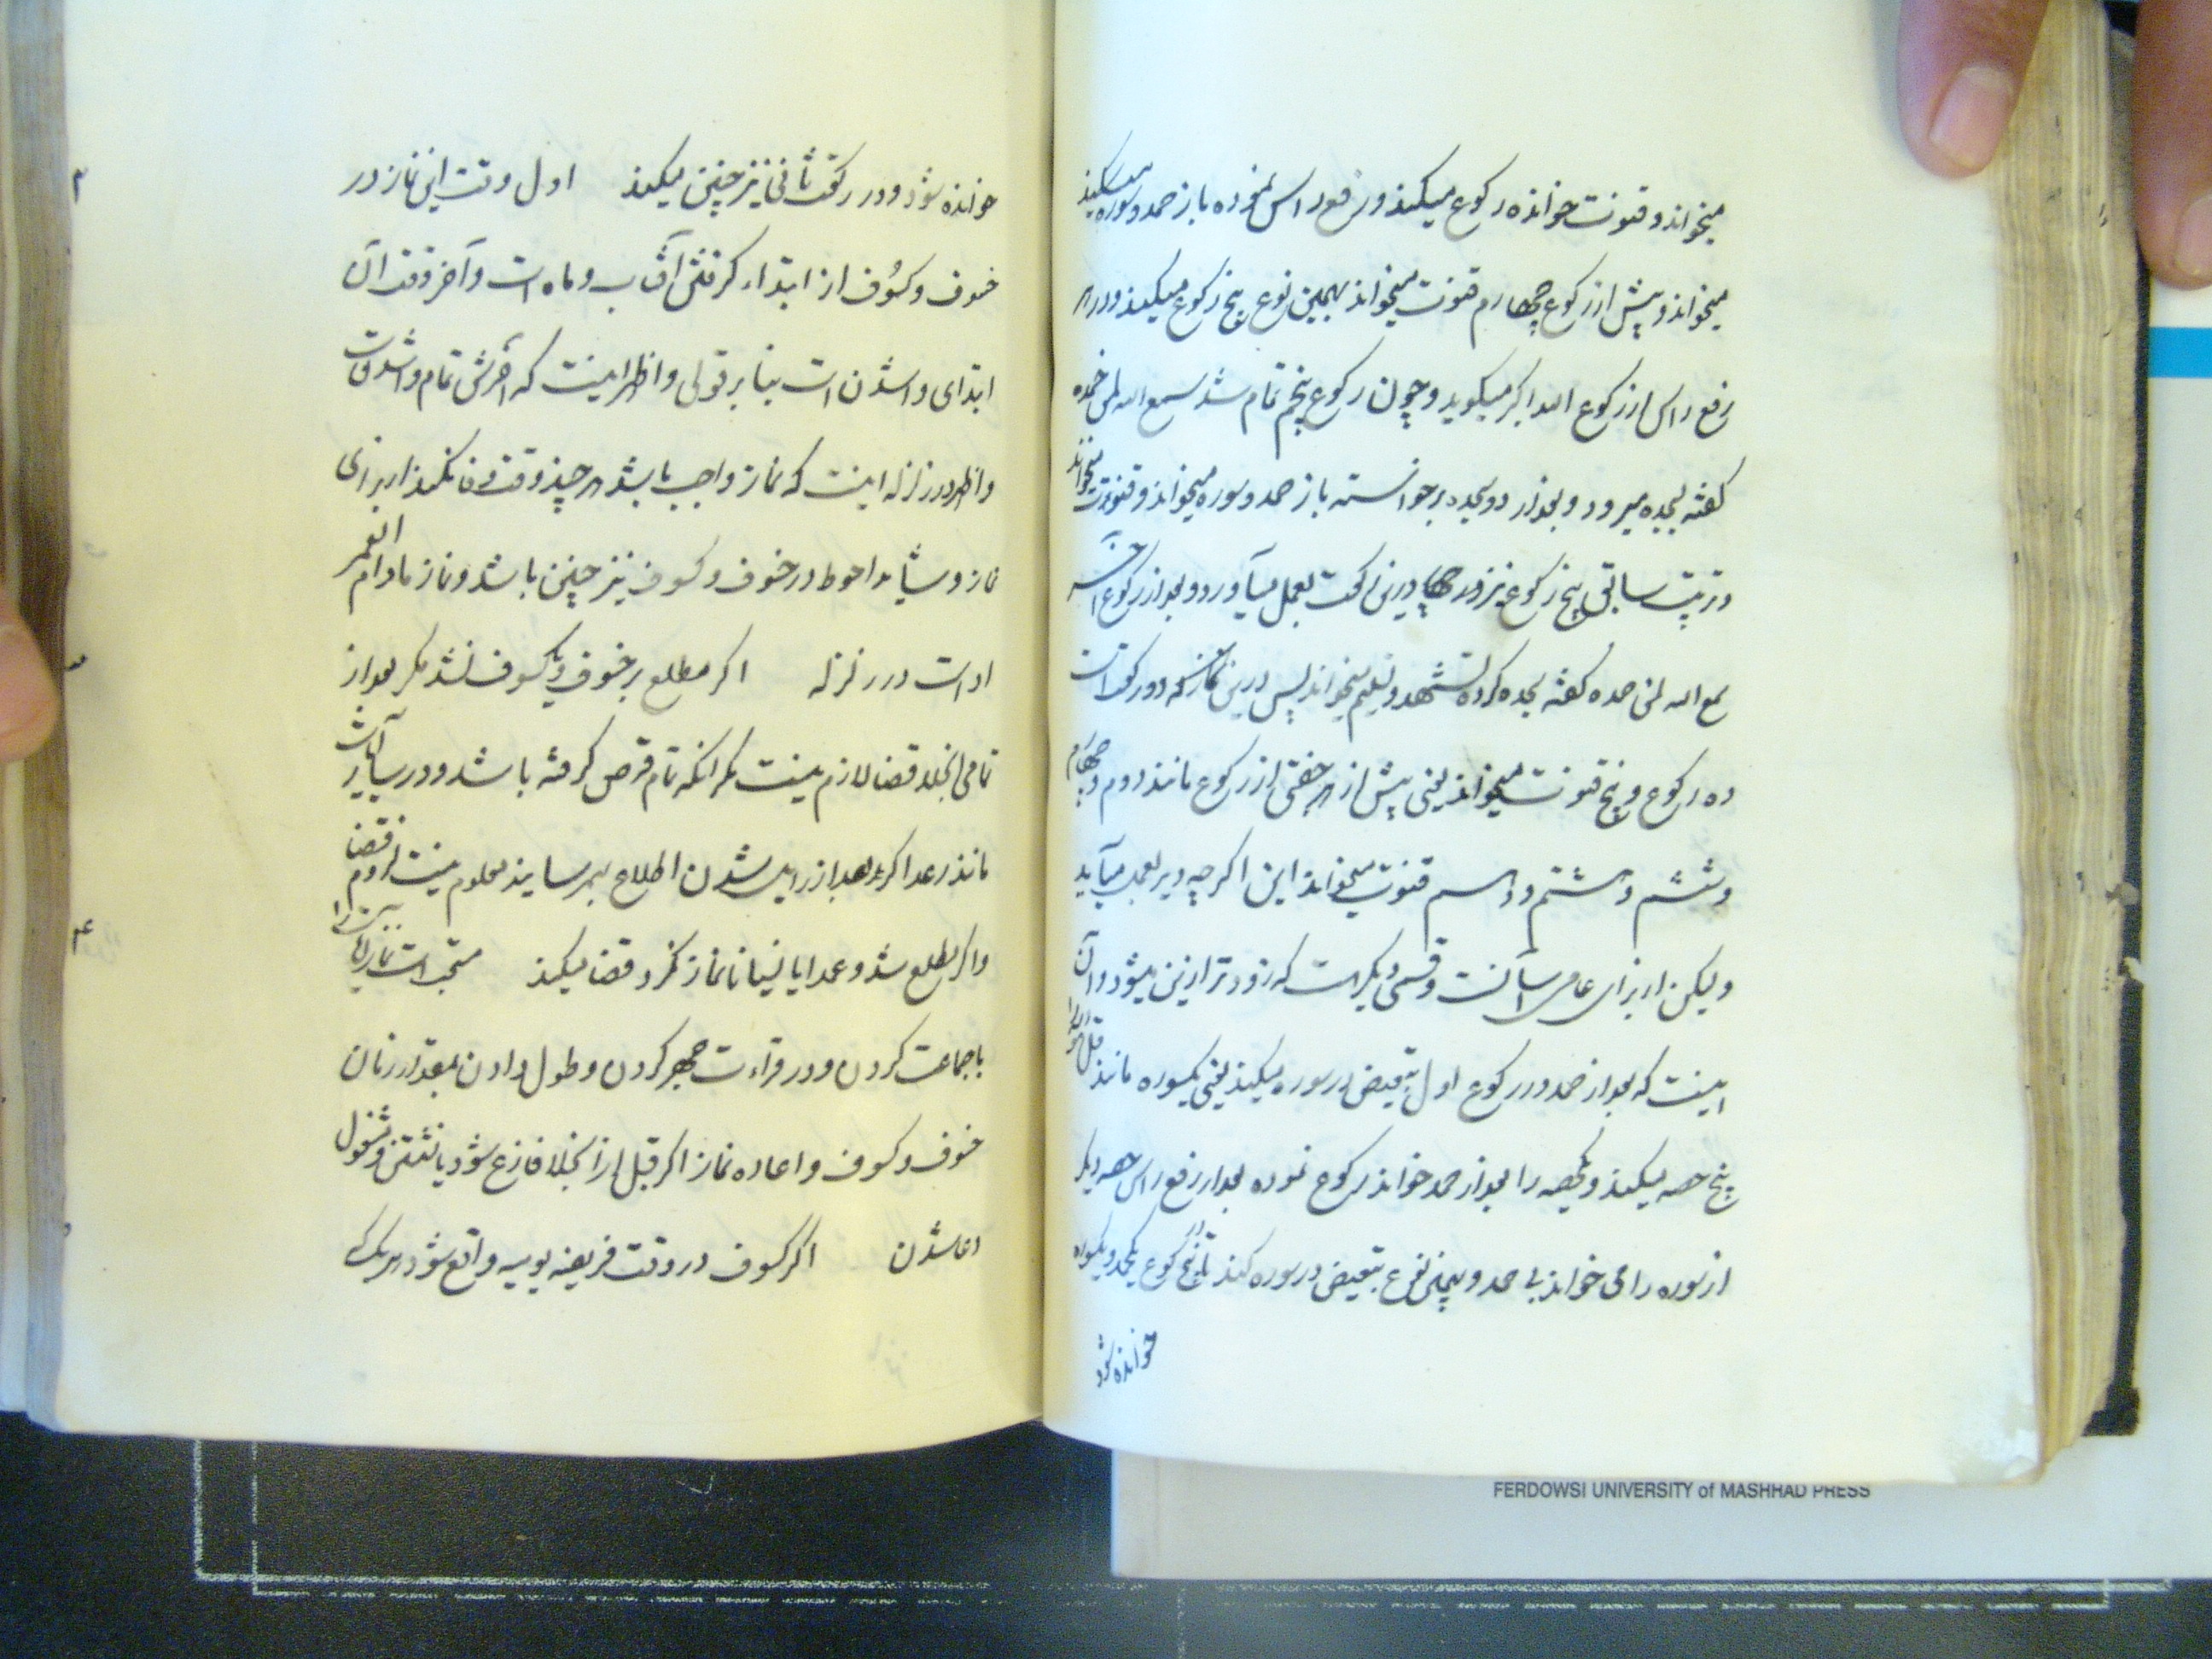 میخواند و قنوت خوانده رکوع میکند و رفع راس نموده باز حمد و سوره
میخواند و پیش از رکوع چهارم قنوت میخواند بهمین نوع پنج رکوع میکند و در هر
رفع راس از رکوع الله اکبر میکوید و چون رکوع پنجم تمام شد سمع الله لمن حمده
کفته بسجده میرود و بعد از دو سجده برخواسته باز حمد و سوره میخواند و قنوت میخواند
و ترتیب سابق پنج رکوع نیز در این رکعت بعمل میآورد و بعد از رکوع آخر
سمع الله لمن حمده کفته سجده کرده تشهد و تسلیم میخواند پس درین نماز که دو رکعت است
ده رکوع و پنج قنوت میخواند یعنی پیش از هر جفتی از رکوع مانند دوم و چهارم
و ششم و هشتم و دهم قنوت میخواند این اکرچه دیر بعمل میآید
و لیکن از برای عامی آسانست و قسمی دیکر هست که زودتر ازین میشود و آن
اینست که بعد از حمد در رکوع اول تبعیض در سوره میکند یعنی یکسوره مانند قل هو الله را
پنج حصه میکند و یکحصه را بعد از حمد خوانده رکوع نموده بعد از رفع راس حصه دیکر
از سوره را می خواند بی حمد و بهمین نوع تبعیض در سوره کند تا در پنج رکوع یکحمد و یکسوره
خوانده شود
خوانده شود و در رکعت ثانی نیز چنین میکند اول وقت این نماز در
خسوف و کسوف از ابتداء کرفتن آفتاب و ماه است و آخر وقت آن
ابتدای وا شدن است بنا بر قولی و اظهر اینست که آخرش تمام وا شدنست
و اظهر در زلزله اینست که نماز واجب باشد هر چند وقت وفا نکند از برای
نماز و شاید احوط در خسوف و کسوف نیز چنین باشد و نماز مادام العمر
اداست در زلزله اکر مطلع بر خسوف و کسوف نشد مکر بعد از
تمامی انجلا قضا لازم نیست مکر انکه تمام قرص کرفته باشد و در سایر آیات
مانند رعد اکر بعد از زایل شدن اطلاع بهمرساند معلوم نیست لزوم قضا
و اکر مطلع شد و عمدا یا نسیانا نماز نکرد قضا میکند مستحب است نماز آیات را
با جماعت کردن و در قراءت جهر کردن و طول دادن بمقدار زمان
خسوف و کسوف و اعاده نماز اکر قبل از انجلا فارغ شود یا نشستن و مشغول
دعا شدن اکر کسوف در وقت فریضه یومیه واقع شود هر یک
۲
۳
۴
FERDOWSI UNIVERSITY of MASHHAD PRESS